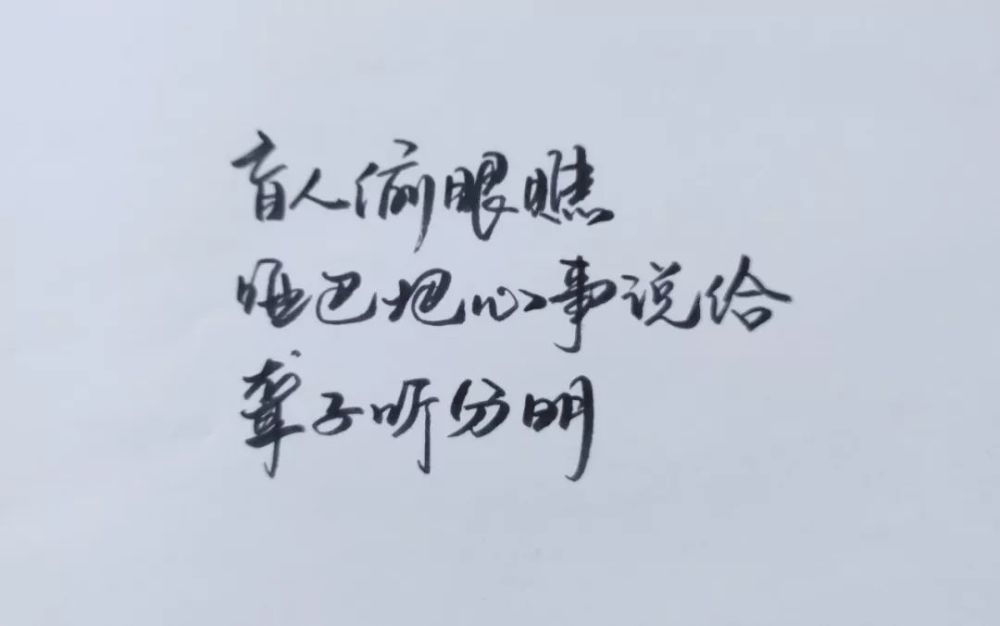 盲人偷眼瞧
哑巴把心事说给
聋子听分明